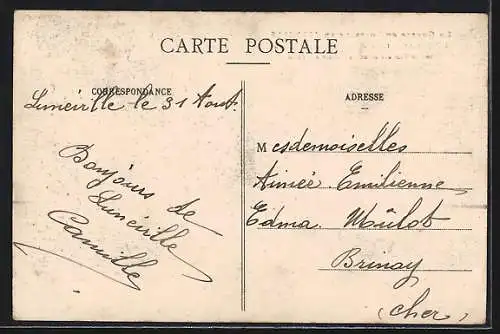 CARTE POSTALE
CORRESPONDANCE
Luneville le 31 Aout.
Bonjours de
Luneville
Camille
ADRESSE
Mesdemoiselles
Aimée. Emilienne
Edma. Mûlot
Brinay
(Cher)